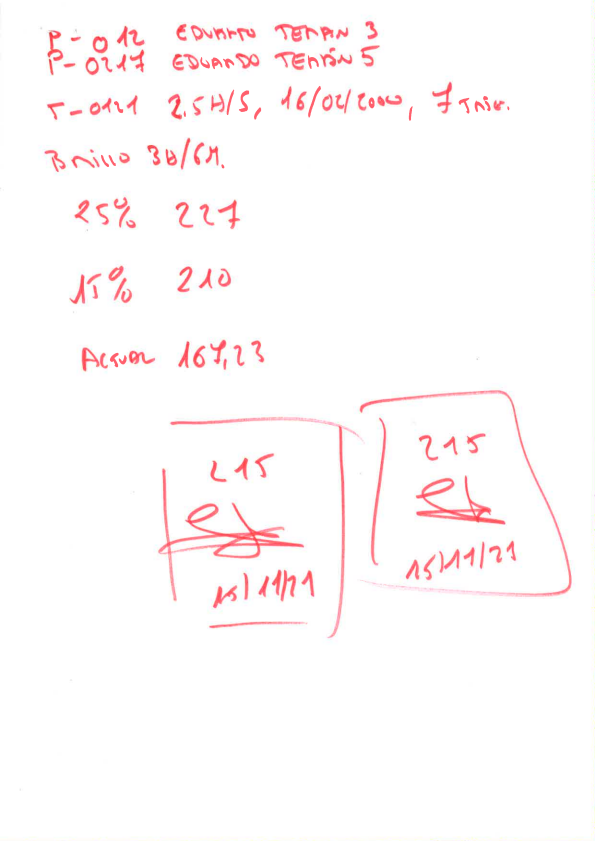 P-012 EDUARDO TERAN 3
P-0217 EDUARDO TERÁN 5
T-0121 2.5H/S, 16/02/2000, 7
Brillo 3H/6M.
25% 227
15% 210
Actual 167,23
215
15/11/21
215
15/11/21